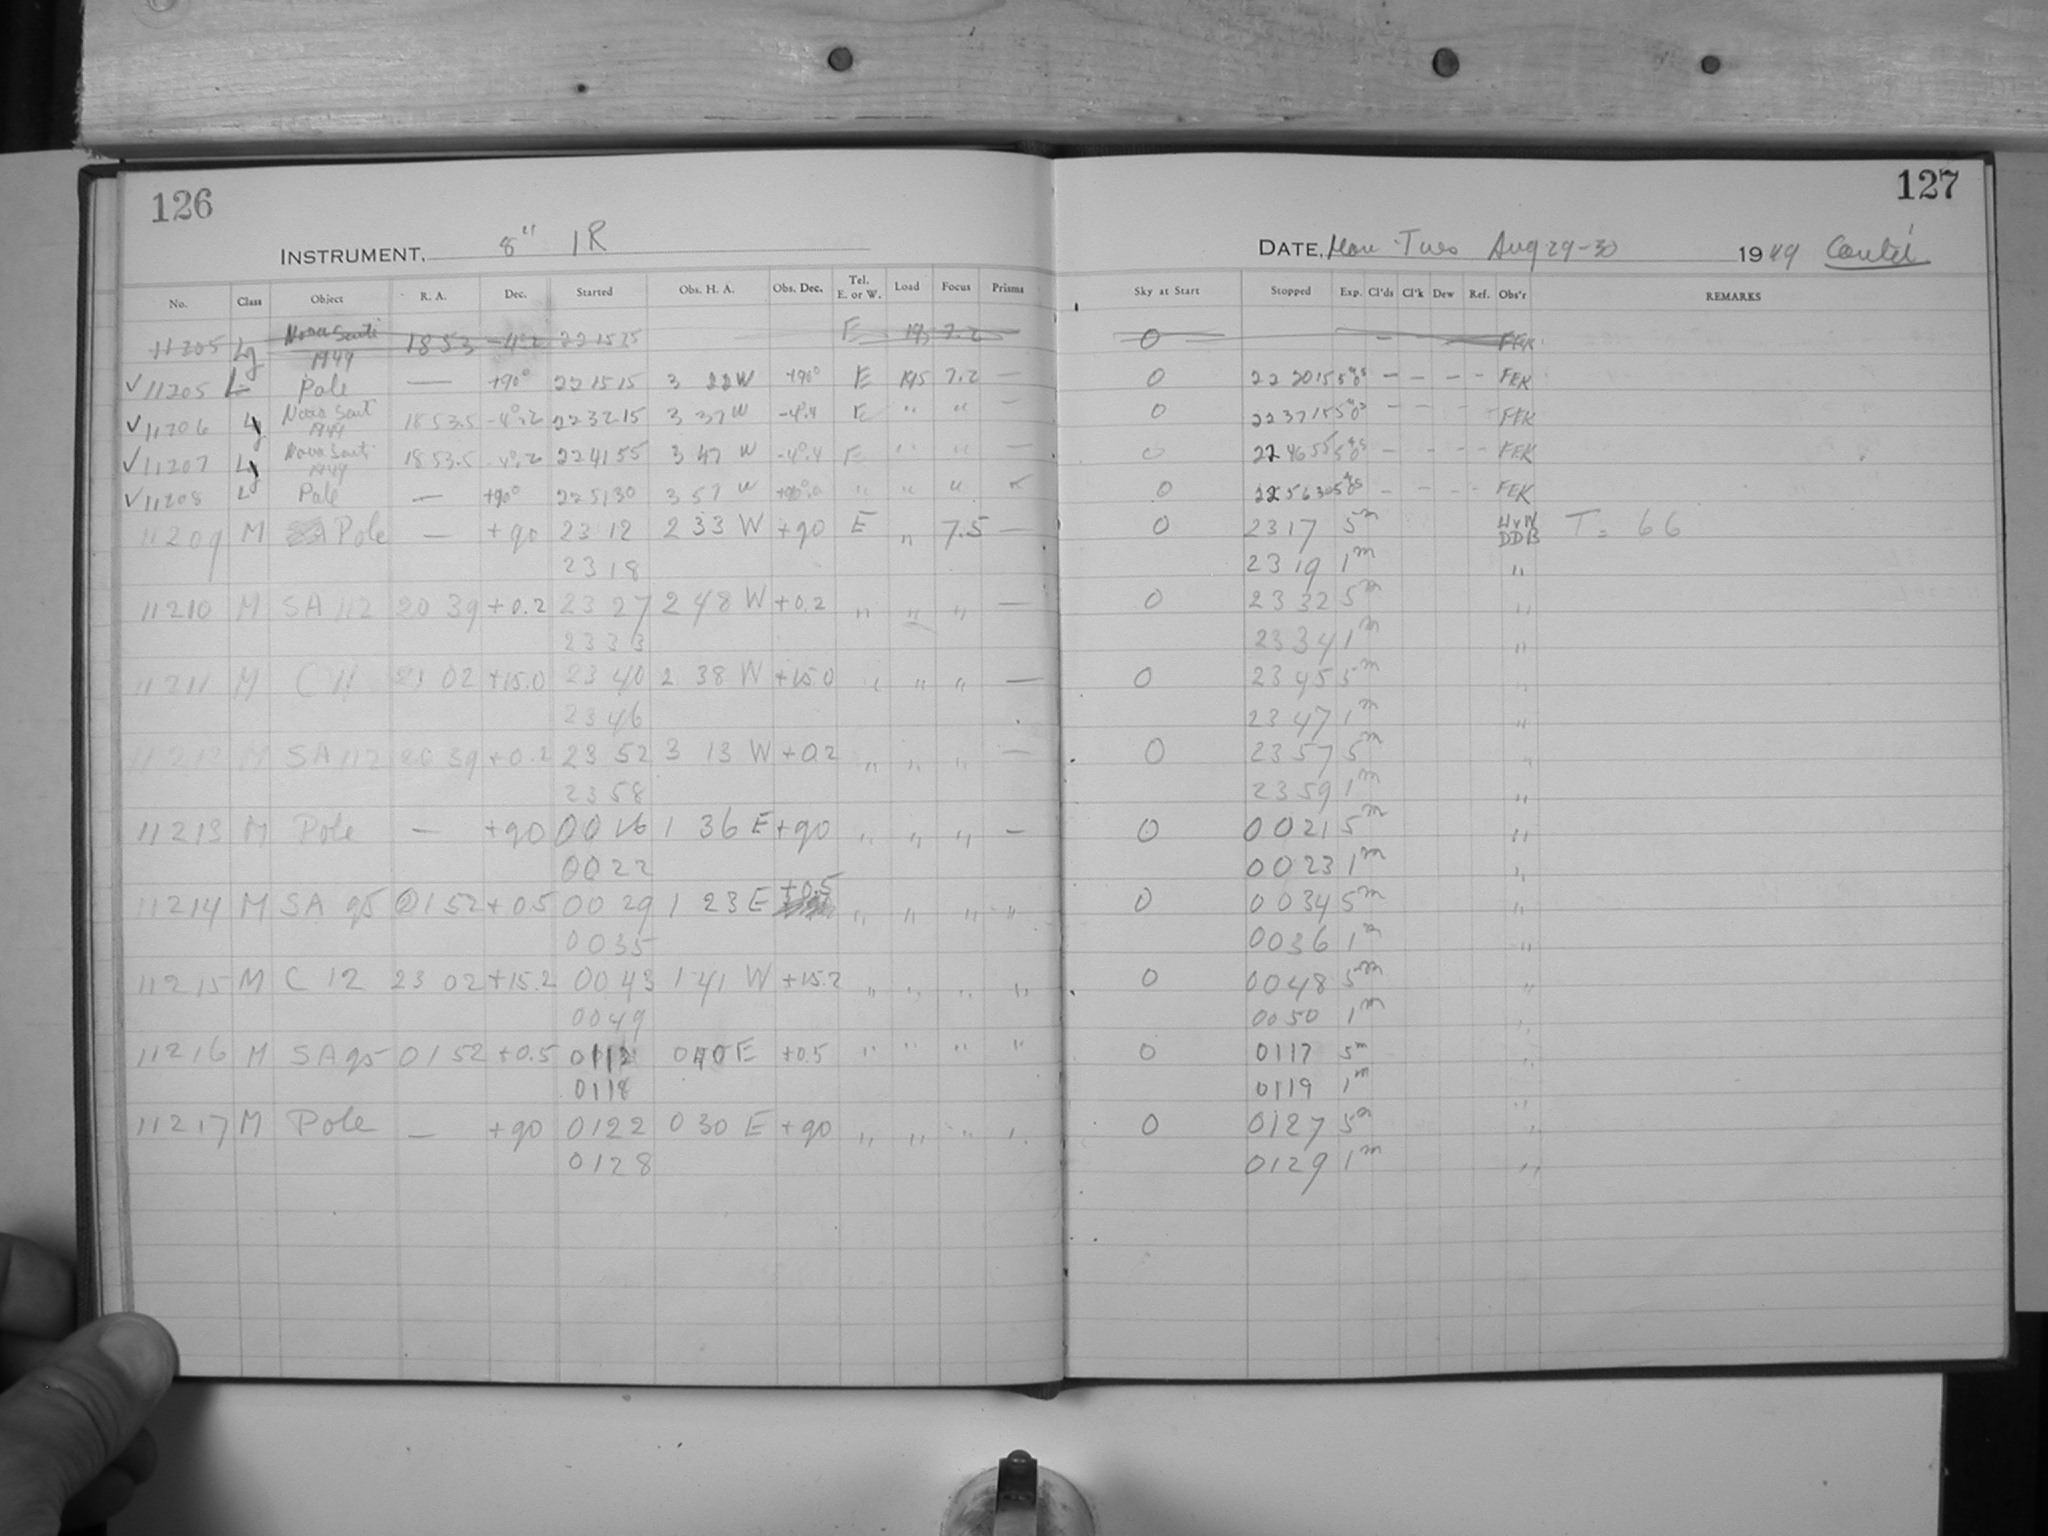 126
127
INSTRUMENT, 8" IR
DATE, Mon-Tues Aug 29-30 1949 Cont'd
No. Class Object R. A. Dec. Started Obs. H. A. Obs. Dec. Tel. E. or W. Load Focus Prisms Sky at Start Stopped Exp. Cl'ds Cl'k Dew Ref. Obs'r REMARKS
11205 Lg Nova Scuti 1949 1853 -4.2 221525 E 195 7.2 0 FEK
✓ 11205 L Pole — +90° 221515 3 22 W +90° E 195 7.2 — 0 222015 — — — - FEK
✓ 11206 Lg Nova Scuti 1949 1853.5 -4°.2 223215 3 37 W -4°.4 E " " — 0 223715 FEK
✓ 11207 Lg Nova Scuti 1949 1853.5 -4°.2 224155 3 47 W -4°.4 E " " — 0 224655 FEK
✓ 11208 Lg Pole — +90° 225130 3 57 W " " " 0 225630 FEK
11209 M Pole — +90 23 12 2 33 W +90 E " 7.5 — 0 23 17 5m HvW DDB T= 66
23 18 23 19 1m "
11210 M SA 112 20 39 +0.2 23 27 2 48 W +0.2 " " " — 0 23 32 5m "
23 33 23 34 1m "
11211 M C 11 21 02 +15.0 23 40 2 38 W +15.0 " " " — 0 23 45 5m "
23 46 23 47 1m "
11212 M SA 112 20 39 +0.2 23 52 3 13 W +0.2 " " " — 0 23 57 5m "
23 58 23 59 1m "
11213 M Pole — +90 00 16 1 36 E +90 " " " — 0 00 21 5m "
00 22 00 23 1m "
11214 M SA 95 01 52 +0.5 00 29 1 23 E +0.5 " " " " 0 00 34 5m "
00 35 00 36 1m "
11215 M C 12 23 02 +15.2 00 43 1 41 W +15.2 " " " " 0 00 48 5m "
00 49 00 50 1m "
11216 M SA 95 01 52 +0.5 0112 0 40 E +0.5 " " " " 0 0117 5m "
0118 0119 1m "
11217 M Pole — +90 0122 0 30 E +90 " " " " 0 0127 5m "
0128 0129 1m "